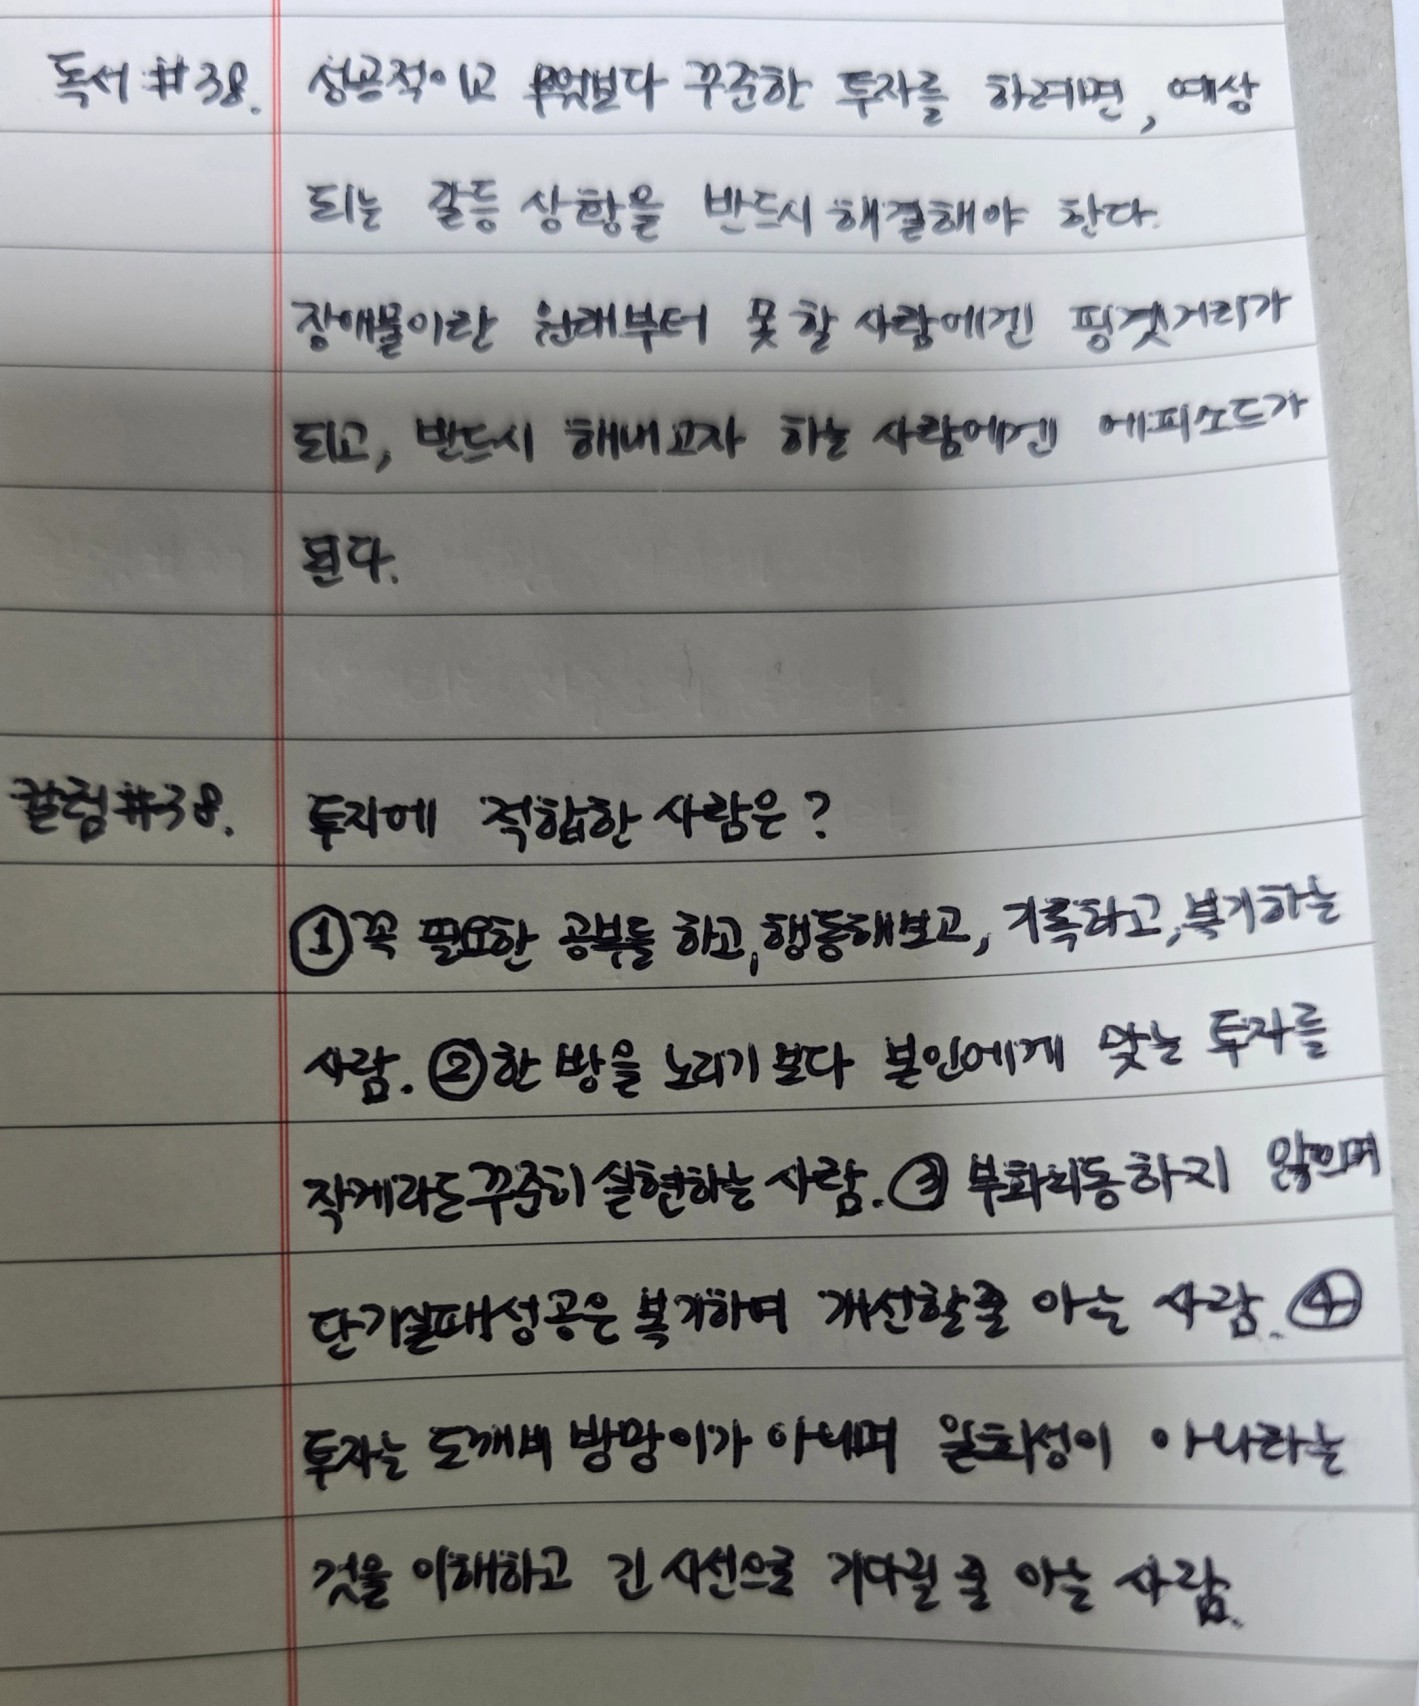 독서 #38. 성공적이고 무엇보다 꾸준한 투자를 하려면, 예상
되는 갈등 상황을 반드시 해결해야 한다.
장애물이란 원래부터 못 할 사람에겐 핑곗거리가
되고, 반드시 해내고자 하는 사람에겐 에피소드가
된다.
칼럼 #38. 투자에 적합한 사람은?
① 꼭 필요한 공부를 하고, 행동해보고, 기록하고, 복기하는
사람. ② 한 방을 노리기 보다 본인에게 맞는 투자를
작게라도 꾸준히 실현하는 사람. ③ 부화뇌동하지 않으며
단기실패성공은 복기하며 개선할 줄 아는 사람. ④
투자는 도깨비 방망이가 아니며 일회성이 아니라는
것을 이해하고 긴 시선으로 기다릴 줄 아는 사람.